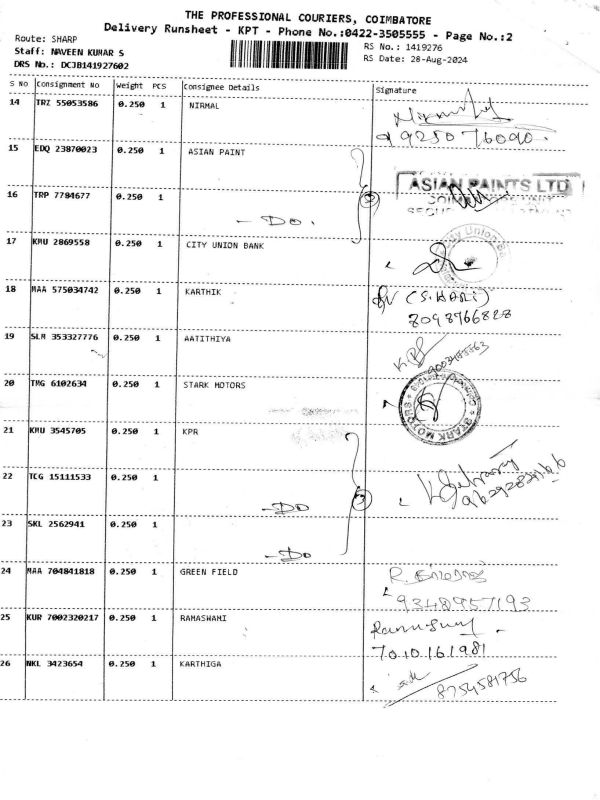 THE PROFESSIONAL COURIERS, COIMBATORE
Delivery Runsheet - KPT - Phone No.:0422-3505555 - Page No.:2
Route: SHARP
RS No.: 1419276
Staff: NAVEEN KUMAR S
RS Date: 28-Aug-2024
DRS No.: DCJB141927602
S NO Consignment No Weight PCS Consignee Details Signature
14 TRZ 55053586 0.250 1 NIRMAL
9250 76090.
15 EDQ 23870023 0.250 1 ASIAN PAINT
ASIAN PAINTS LTD
16 TRP 7784677 0.250 1
- DO.
17 KMU 2869558 0.250 1 CITY UNION BANK
18 MAA 575034742 0.250 1 KARTHIK
(S.HARI)
8098766828
19 SLM 353327776 0.250 1 AATITHIYA
9003485563
20 TMG 6102634 0.250 1 STARK MOTORS
STARK MOTORS
21 KMU 3545705 0.250 1 KPR
22 TCG 15111533 0.250 1
- DO
3
23 SKL 2562941 0.250 1
- DO
24 MAA 704841818 0.250 1 GREEN FIELD
9348957193
25 KUR 7002320217 0.250 1 RAMASWAMI
7010161981
26 NKL 3423654 0.250 1 KARTHIGA
8754581756